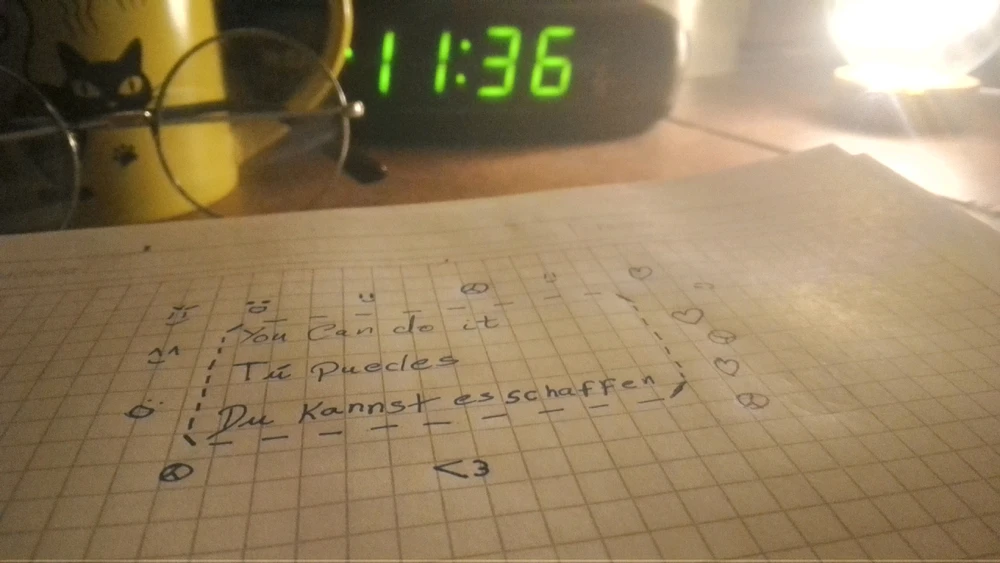 11:36
You Can do it
Tú puedes
Du kannst es schaffen
<3